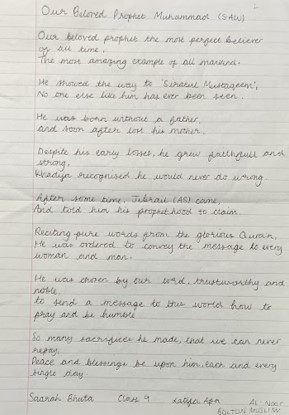 Our Beloved Prophet Muhammad (SAW)
Our beloved prophet the most perfect believer
of all time,
The most amazing example of all mankind.
He showed the way to 'Siratul Mustaqeem',
No one else like him has ever been seen.
He was born without a father,
and soon after lost his mother.
Despite his early losses, he grew faithfull and
strong,
Khadija recognised he would never do wrong
After some time, Jebrail (AS) came,
And told him his prophethood to claim.
Reciting pure words from the glorious Quran,
He was ordered to convey the message to every
woman and man.
He was chosen by our Lord, trustworthy and
noble,
to send a message to this world how to
pray and be humble
So many sacrifices he made, that we can never
repay,
Peace and blessings be upon him, each and every
single day.
Saarah Bhuta Class 9 Apa AL NOOR
BOLTON MUSLIM